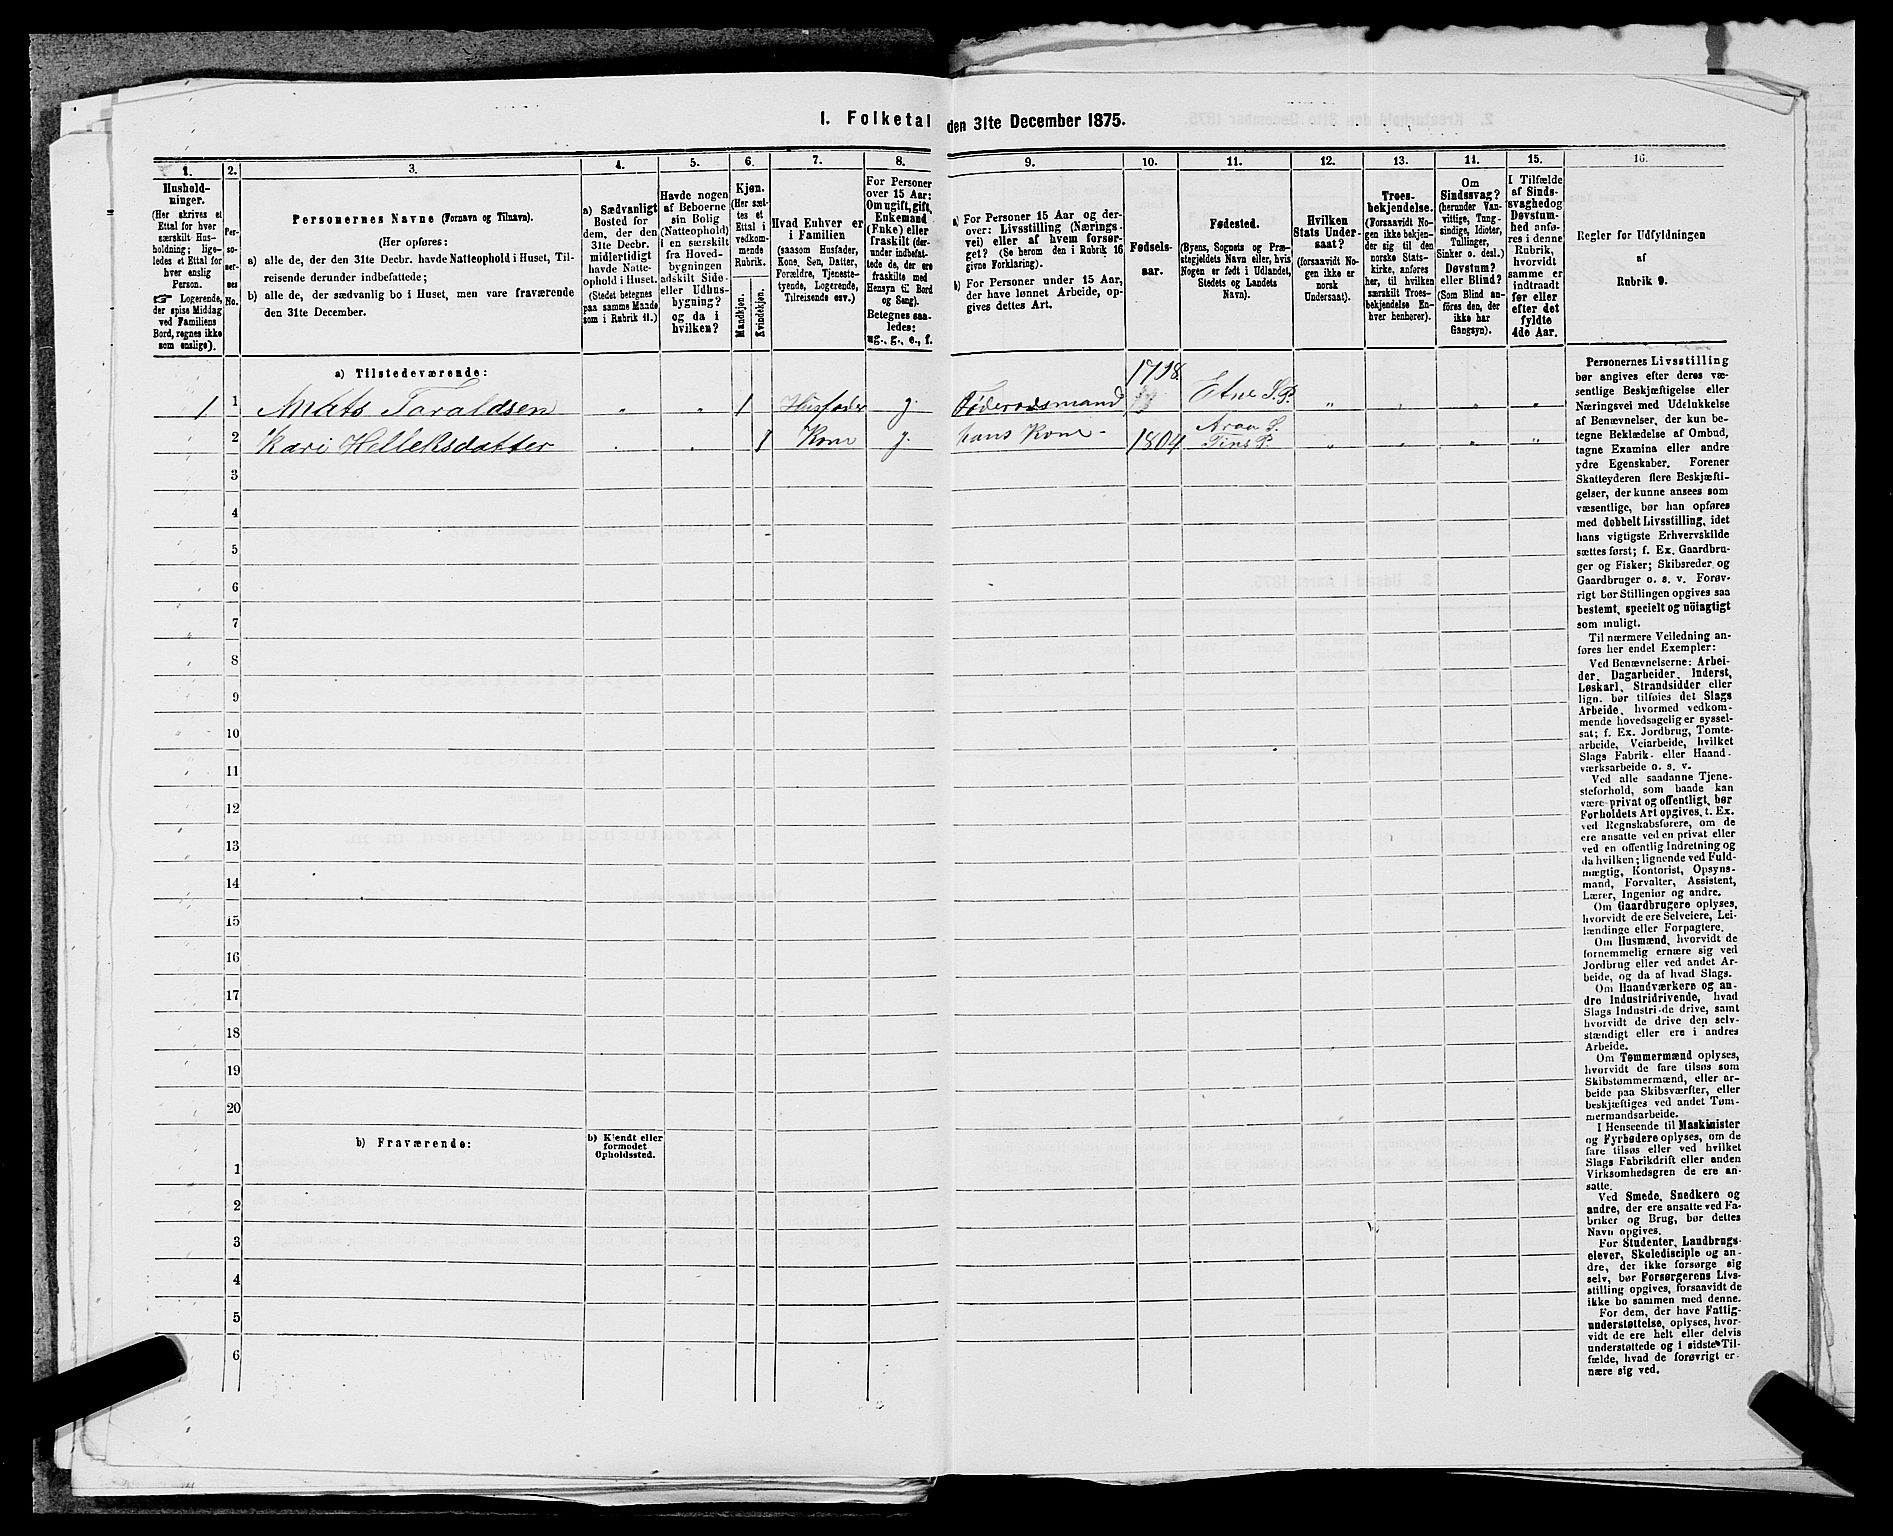 I. Folketal den 31te December 1875.
1.
Hushold-
ninger.
(Her skrives et
Ettal for hver
særskilt Hus-
holdning; lige-
ledes et Ettal for
hver enslig
Person.
☞ Logerende,
der spise Middag
ved Familiens
Bord, regnes ikke
som enslige).
2.
Per-
so-
ner-
nes
No.
3.
Personernes Navne (Fornavn og Tilnavn).
(Her opføres:
a) alle de, der den 31te Decbr. havde Natteophold i Huset, Til-
reisende derunder indbefattede;
b) alle de, der sædvanlig bo i Huset, men vare fraværende
den 31te December.
4.
a) Sædvanligt
Bosted for
dem, der den
31te Decbr.
midlertidigt
havde Natte-
ophold i Huset.
(Stedet betegnes
paa samme Maade
som i Rubrik 11.)
5.
Havde nogen
af Beboerne
sin Bolig
(Natteophold)
i en særskilt
fra Hoved-
bygningen
adskilt Side-
eller Udhus-
bygning?
og da i
hvilken?
6.
Kjøn.
(Her sæt-
tes et
Ettal i
vedkom-
mende
Rubrik.
Mandkjøn.
Kvindekjøn.
7.
Hvad Enhver er
i Familien
(saasom Husfader,
Kone, Søn, Datter,
Forældre, Tjeneste-
tyende, Logerende,
Tilreisende osv.)
8.
For Personer
over 15 Aar:
Om ugift, gift,
Enkemand
(Enke) eller
fraskilt (der-
under indbefat-
tede de, der ere
fraskilte med
Hensyn til Bord
og Seng).
Betegnes saa-
ledes:
ug., g., e., f.
9.
a) For Personer 15 Aar og der-
over: Livsstilling (Nærings-
vei) eller af hvem forsør-
get? (Se herom den i Rubrik 16
givne Forklaring).
b) For Personer under 15 Aar,
der have lønnet Arbeide, op-
gives dettes Art.
10.
Fødsels-
aar.
11.
Fødested.
(Byens, Sognets og Præ-
stegjeldets Navn eller, hvis
Nogen er født i Udlandet,
Stedets og Landets
Navn).
12.
Hvilken
Stats Under-
saat?
(forsaavidt No-
gen ikke er
norsk
Undersaat).
13.
Troes-
bekjendelse.
(Forsaavidt No-
gen ikke bekjen-
der sig til den
norske Stats-
kirke, anføres
her, til hvilken
særskilt Troes-
bekjendelse En-
hver henhører).
14.
Om
Sindssvag?
(herunder Van-
vittige, Tung-
sindige, Idioter,
Tullinger,
Sinker o. desl.)
Døvstum?
eller Blind?
(Som Blind an-
føres den, der
ikke har
Gangsyn).
15.
I Tilfælde
af Sinds-
svaghed og
Døvstum-
hed anfø-
res i denne
Rubrik,
hvorvidt
samme er
indtraadt
før eller
efter det
fyldte
4de Aar.
16.
Regler for Udfyldningen
af
Rubrik 9.
a) Tilstedeværende:
1798.
1 1 Mats Taraldsen " " 1 Husfader g. Føderaadsmand Etne S. P. " " " "
2 Kari Helleksdatter " " 1 Kone g. hans Kone - 1804 Araa S. Tins P. " " " "
3
4
5
6
7
8
9
10
11
12
13
14
15
16
17
18
19
20
b) Fraværende:
b) Kjendt eller
formodet
Opholdssted.
1
2
3
4
5
6
Personernes Livsstilling
bør angives efter deres væ-
sentlige Beskjæftigelse eller
Næringsvei med Udelukkelse
af Benævnelser, der kun be-
tegne Beklædelse af Ombud,
tagne Examina eller andre
ydre Egenskaber. Forener
Skatteyderen flere Beskjæfti-
gelser, der kunne ansees som
væsentlige, bør han opføres
med dobbelt Livsstilling, idet
hans vigtigste Erhvervskilde
sættes først; f. Ex. Gaardbru-
ger og Fisker; Skibsreder og
Gaardbruger o. s. v. Forøv-
rigt bør Stillingen opgives saa
bestemt, specielt og nöiagtigt
som muligt.
Til nærmere Veiledning an-
føres her endel Exempler:
Ved Benævnelserne: Arbei-
der, Dagarbeider, Inderst,
Løskarl, Strandsidder eller
lign. bør tilføies det Slags
Arbeide, hvormed vedkom-
mende hovedsagelig er syssel-
sat; f. Ex. Jordbrug, Tomte-
arbeide, Veiarbeide, hvilket
Slags Fabrik- eller Haand-
værksarbeide o. s. v.
Ved alle saadanne Tjene-
steforhold, som baade kan
være privat og offentligt, bør
Forholdets Art opgives, t. Ex.
ved Regnskabsførere, om de
ere ansatte ved en privat eller
ved en offentlig Indretning og
da hvilken; lignende ved Fuld-
mægtig, Kontorist, Opsyns-
mand, Forvalter, Assistent,
Lærer, Ingeniør og andre.
Om Gaardbrugere oplyses,
hvorvidt de ere Selveiere, Lei-
lændinge eller Forpagtere.
Om Husmænd, hvorvidt de
fornemmelig ernære sig ved
Jordbrug eller ved andet Ar-
beide, og da af hvad Slags.
Om Haandværkere og an-
dre Industridrivende, hvad
Slags Industri de drive, samt
hvorvidt de drive den selv-
stændigt eller ere i andres
Arbeide.
Om Tømmermænd oplyses,
hvorvidt de fare tilsøs som
Skibstømmermænd, eller ar-
beide paa Skibsværfter, eller
beskjæftiges ved andet Tøm-
mermandsarbeide.
I Henseende til Maskinister
og Fyrbødere oplyses, om de
fare tilsøs eller ved hvilket
Slags Fabrikdrift eller anden
Virksomhedsgren de ere an-
satte.
Ved Smede, Snedkere og
andre, der ere ansatte ved Fa-
briker og Brug, bør dettes
Navn opgives.
For Studenter, Landbrugs-
elever, Skoledisciple og an-
dre, der ikke forsørge sig
selv, bør Forsørgerens Livs-
stilling opgives, forsaavidt de
ikke bo sammen med denne.
For dem, der have Fattig-
understøttelse, oplyses, hvor-
vidt de ere helt eller delvis
understøttede og i sidste Til-
fælde, hvad de forøvrigt er-
nære sig ved.